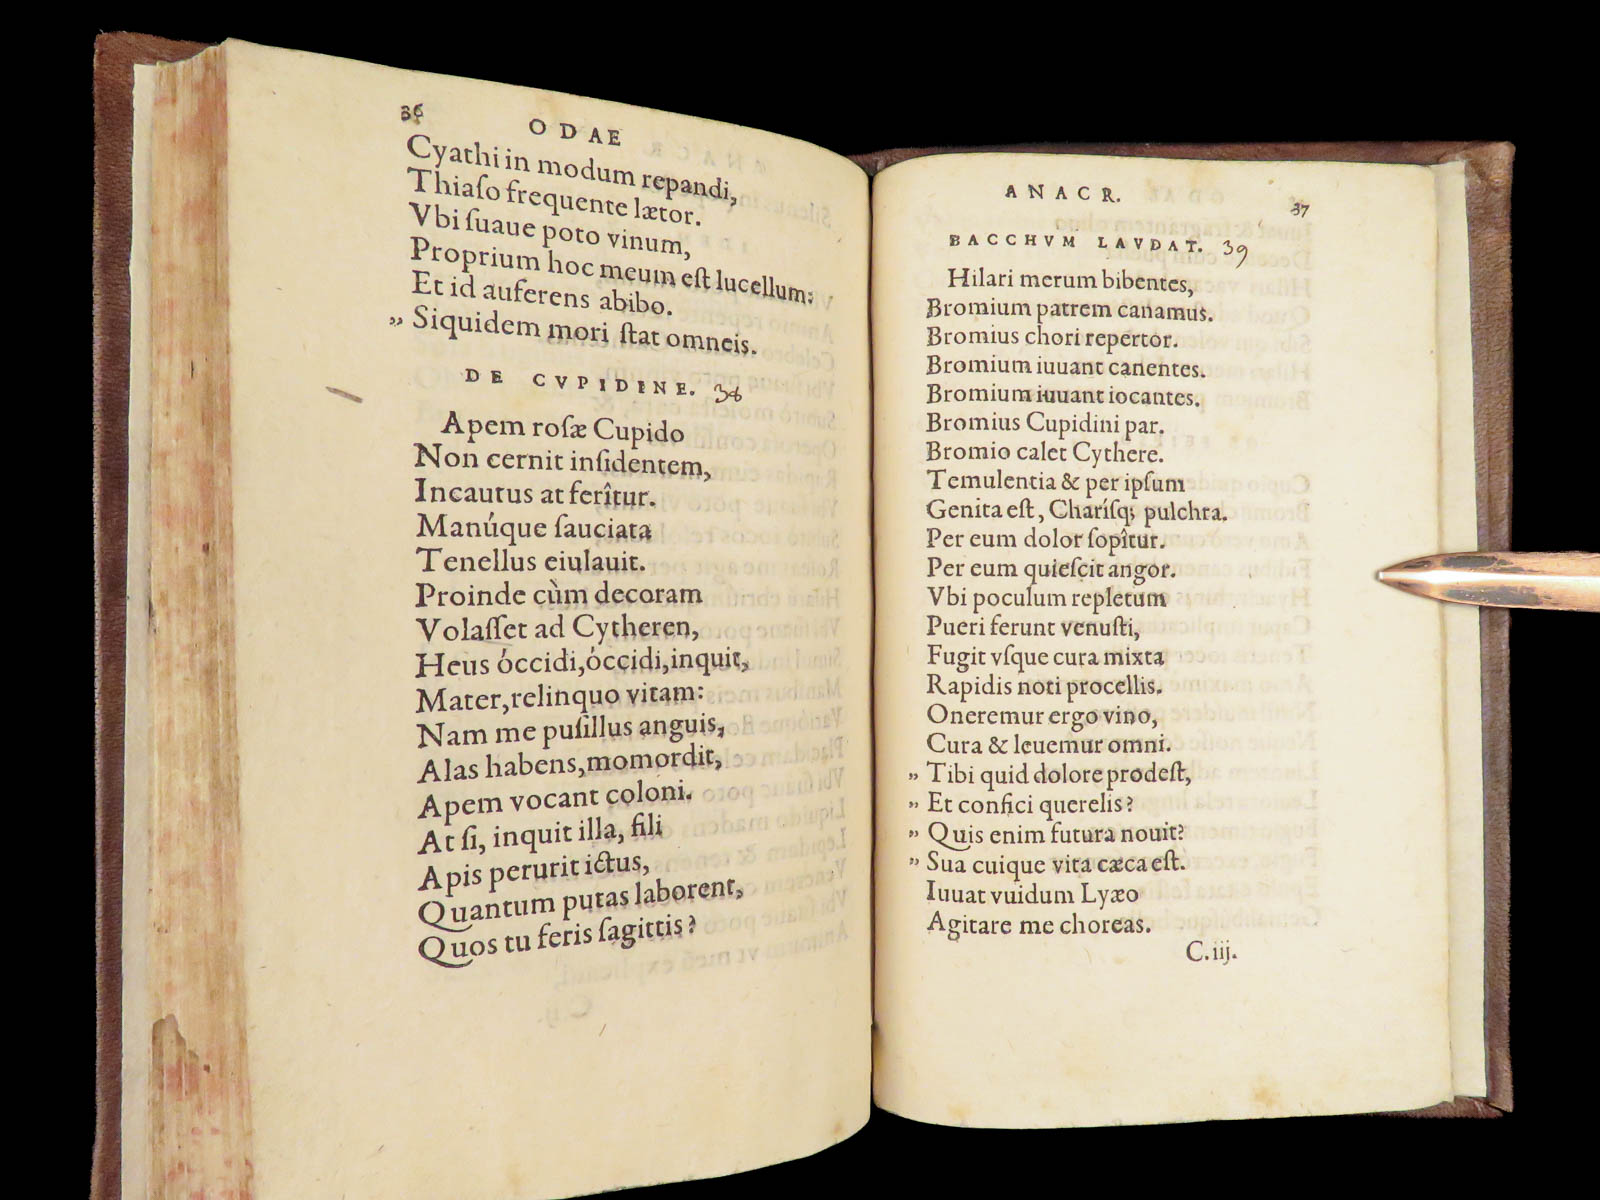 36
ODAE
Cyathi in modum repandi,
Thiaſo frequente lætor.
Vbi ſuaue poto vinum,
Proprium hoc meum eſt lucellum:
Et id auferens abibo.
„ Siquidem mori ſtat omneis.
DE CVPIDINE. 38
Apem roſæ Cupido
Non cernit inſidentem,
Incautus at ferîtur.
Manúque ſauciata
Tenellus eiulauit.
Proinde cùm decoram
Volaſſet ad Cytheren,
Heus óccidi, óccidi, inquit,
Mater, relinquo vitam:
Nam me puſillus anguis,
Alas habens, momordit,
Apem vocant coloni.
At ſi, inquit illa, fili
Apis perurit ictus,
Quantum putas laborent,
Quos tu feris ſagittis?
ANACR.
37
BACCHVM LAVDAT. 39
Hilari merum bibentes,
Bromium patrem canamus.
Bromius chori repertor.
Bromium iuuant canentes.
Bromium iuuant iocantes.
Bromius Cupidini par.
Bromio calet Cythere.
Temulentia & per ipſum
Genita eſt, Charíſq; pulchra.
Per eum dolor ſopîtur.
Per eum quieſcit angor.
Vbi poculum repletum
Pueri ferunt venuſti,
Fugit vſque cura mixta
Rapidis noti procellis.
Oneremur ergo vino,
Cura & leuemur omni.
„ Tibi quid dolore prodeſt,
„ Et confici querelis?
„ Quis enim futura nouit?
„ Sua cuique vita cæca eſt.
Iuuat vuidum Lyæo
Agitare me choreas.
C.iij.